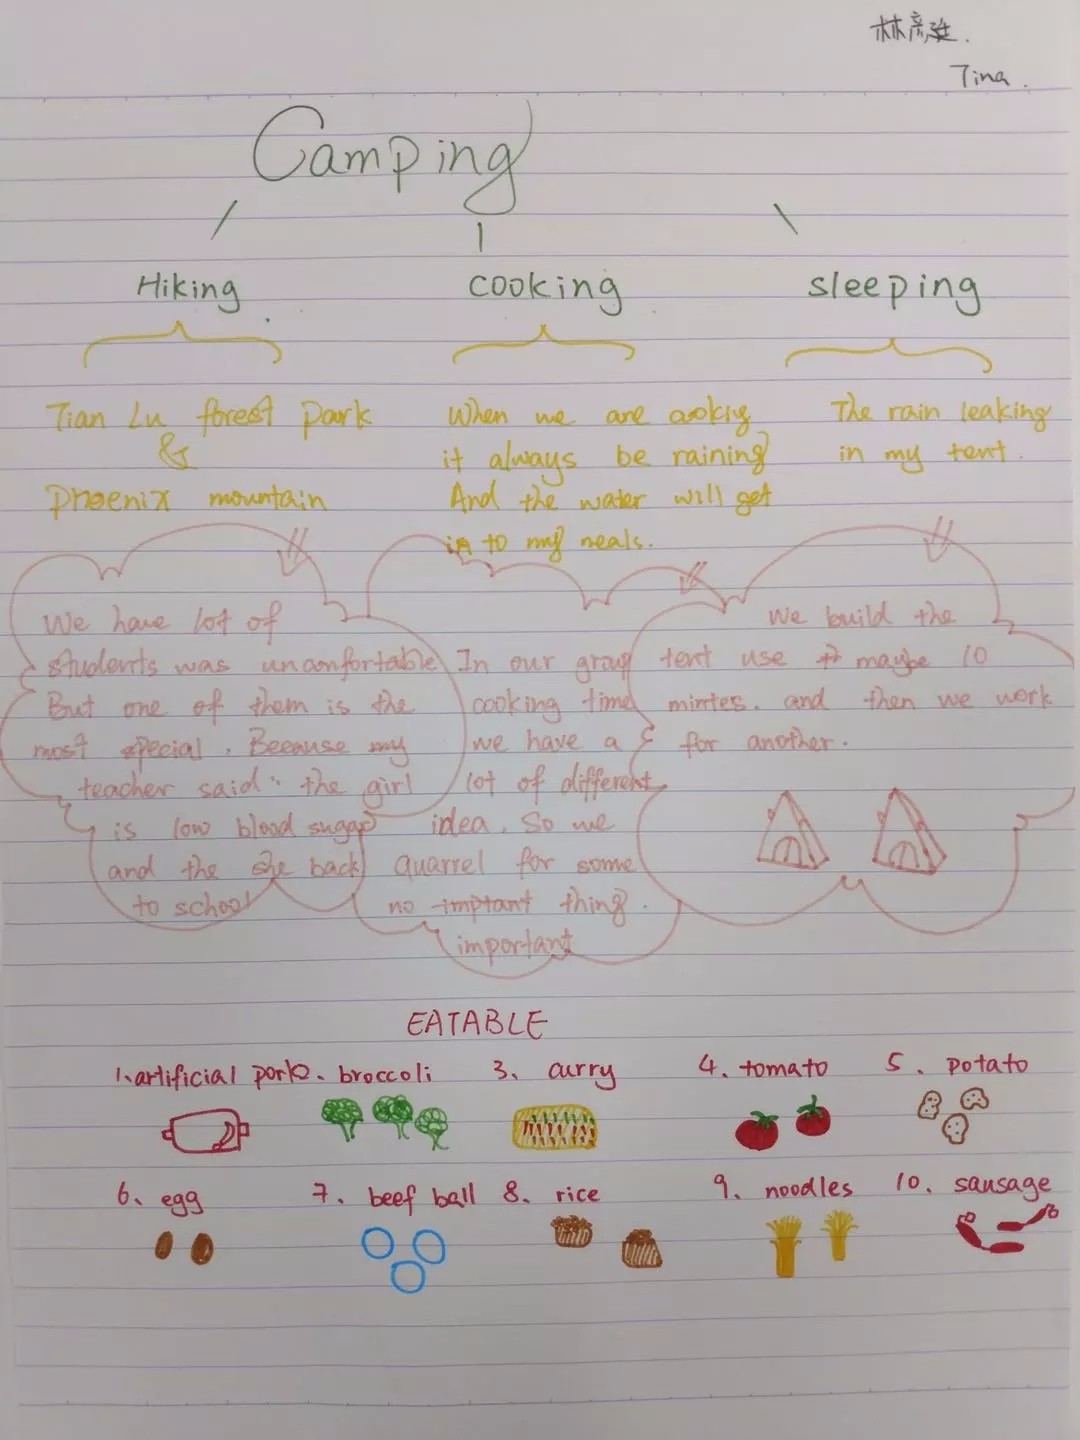 林彦廷.
Tina.
Camping
Hiking cooking sleeping
Tian Lu forest park
&
Phoenix mountain
When we are cooking
it always be raining
And the water will get
in to my meals.
The rain leaking
in my tent.
We have lot of
students was uncomfortable
But one of them is the
most special. Because my
teacher said: the girl
is low blood sugar
and the she back
to school
In our group
cooking time
we have a
lot of different
idea. So we
quarrel for some
no imptant thing.
important
We build the
tent use maybe 10
mintes. and then we work
for another.
EATABLE
1、artificial pork、 broccoli 3、 curry 4. tomato 5. potato
6、egg 7. beef ball 8. rice 9. noodles 10. sausage